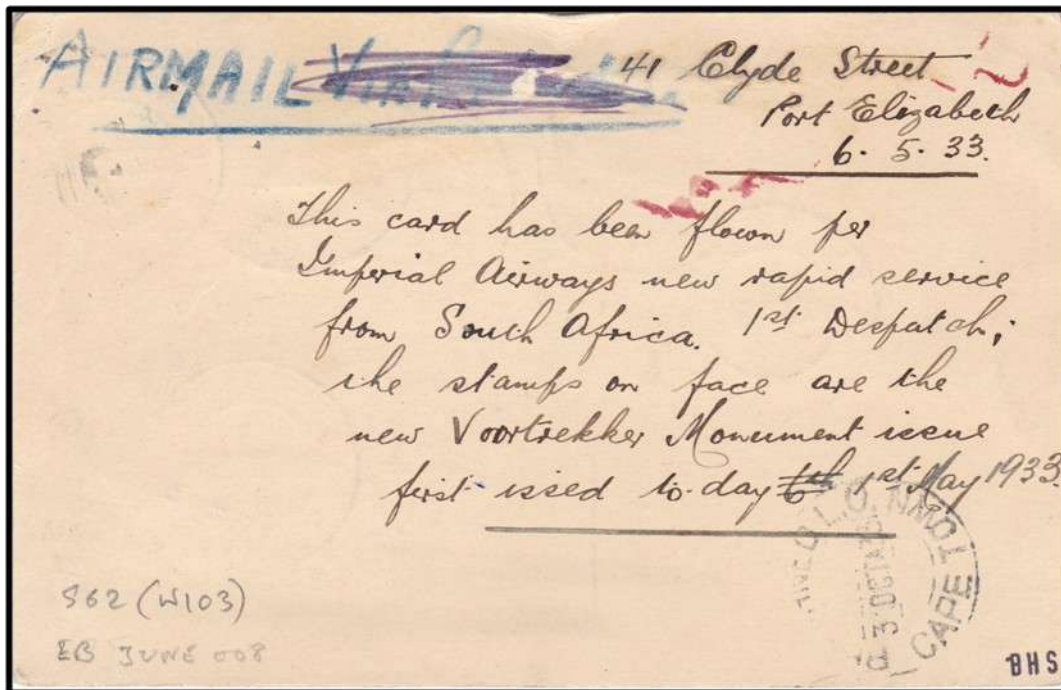 AIRMAIL
41 Clyde Street
Port Elizabeth
6. 5. 33.
This card has been flown per
Imperial Airways new rapid service
from South Africa. 1st Despatch;
the stamps on face are the
new Voortrekker Monument issue
first issed to-day 6th 1st May 1933.
CAPE TOWN
S62 (W103)
EB JUNE 008
BHS